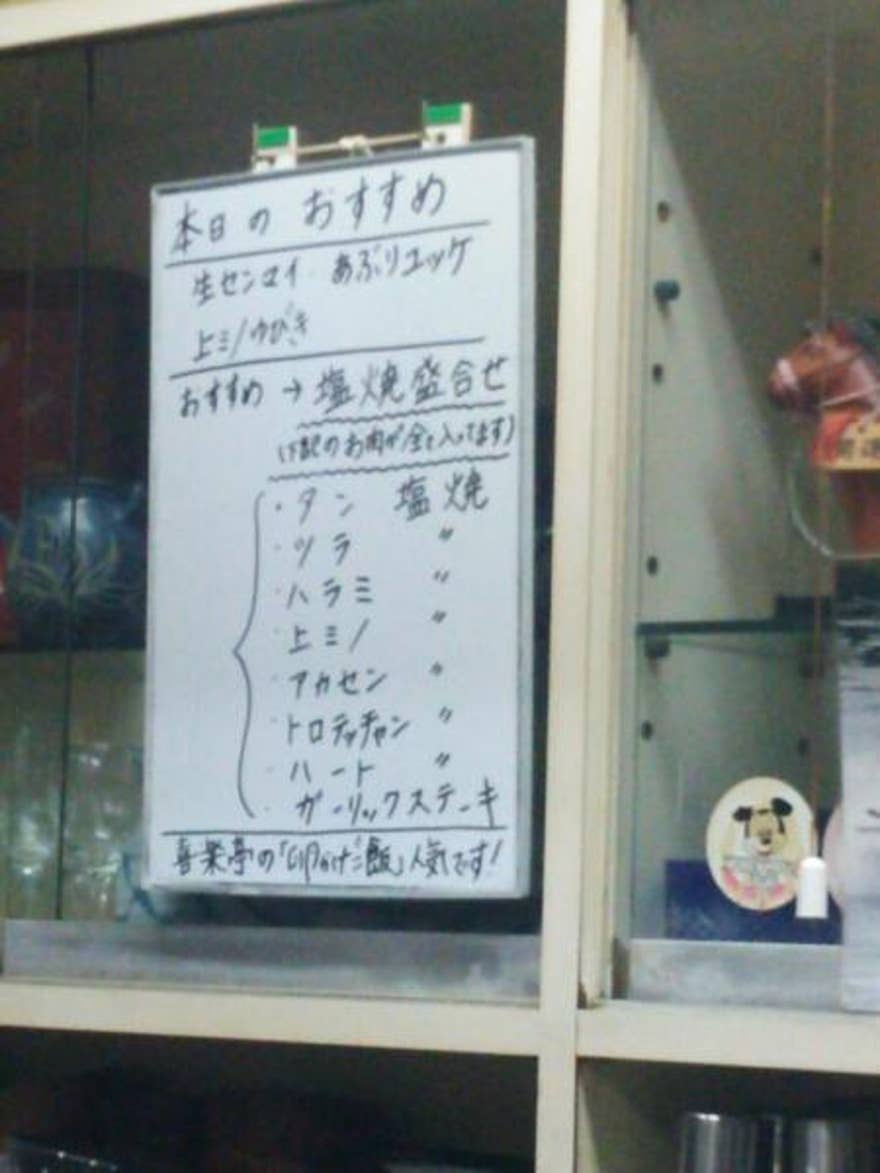 本日のおすすめ
生センマイ あぶりユッケ
上ミノゆびき
おすすめ → 塩焼盛合せ
(下記のお肉が全て入ってます)
・タン 塩焼
・ツラ 〃
・ハラミ 〃
・上ミノ 〃
・アカセン 〃
・トロテッチャン 〃
・ハート 〃
・ガーリックステーキ
喜楽亭の「卵かけご飯」人気です!